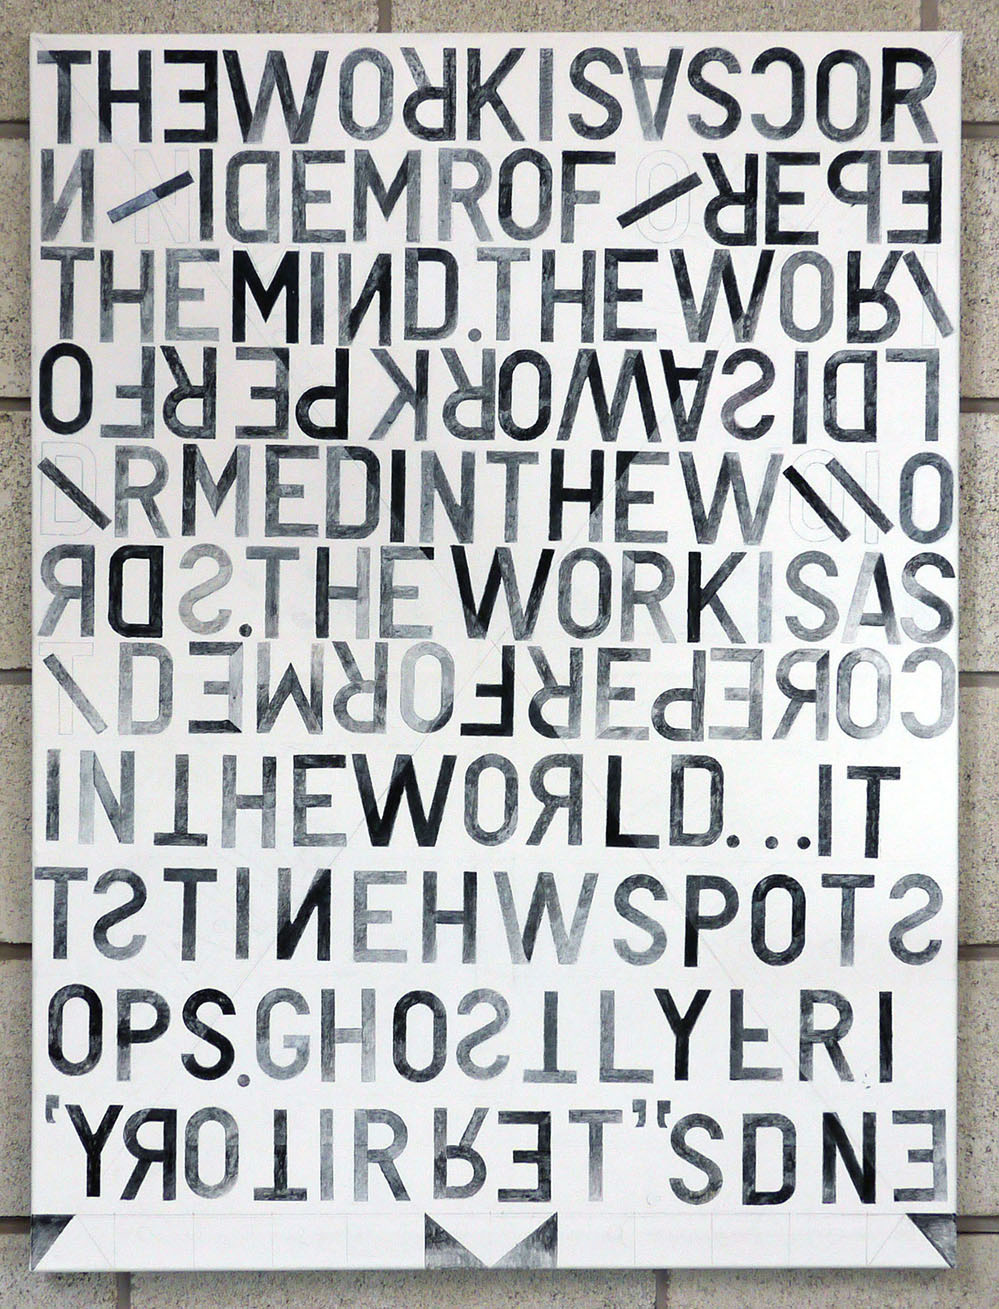 THEWORKISASCOR
N/IDEMROF/REPE
THEMIND.THEWOR/
OFREPKROWASIDL
/RMEDINTHEW//O
RDS.THEWORKISAS
/DEMROFREPEROC
INTHEWORLD...IT
TSTINEHWSPOTS
OPS.GHOSTLYFRI
'YROTIRRET”“SDNE